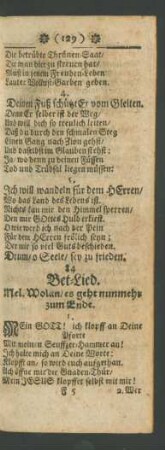 (129)
Die betrübte Thränen-Saat/
Die man hier zu streuen hat/
Muß in jenem Freuden-Leben
Lauter Wollust-Garben geben.
4.
Deinen Fuß schützt Er vom Gleiten.
Dann Er selber ist der Weg/
Und will dich so treulich leiten/
Daß du durch den schmalen Steg
Einen Gang nach Zion gehst/
Und dabey im Glauben stehst:
Ja/ wo denn zu deinen Füssen
Tod und Trübsal liegen müssen!
5.
Ich will wandeln für dem HErren/
Wo das Land des Lebens ist.
Nichts kan mir den Himmel sperren/
Den mir GOttes Huld erkiest.
O wie werd ich nach der Pein
Für den HErren frölich seyn;
Der mir so viel Guts bescheiden.
Drum/ o Seele/ sey zu frieden.
24
Bet-Lied.
Mel. Wolan/ es geht nunmehr
zum Ende.
1.
MEin GOTT! ich klopff an Deine
Pforte
Mit meinem Seuffzer-Hammer an!
Ich halte mich an Deine Worte:
Klopfft an/ so wird euch aufgethan.
Ach öffne mir die Gnaden-Thür/
Mein JESUS klopffet selbst mit mir!
F 5
2. Wer